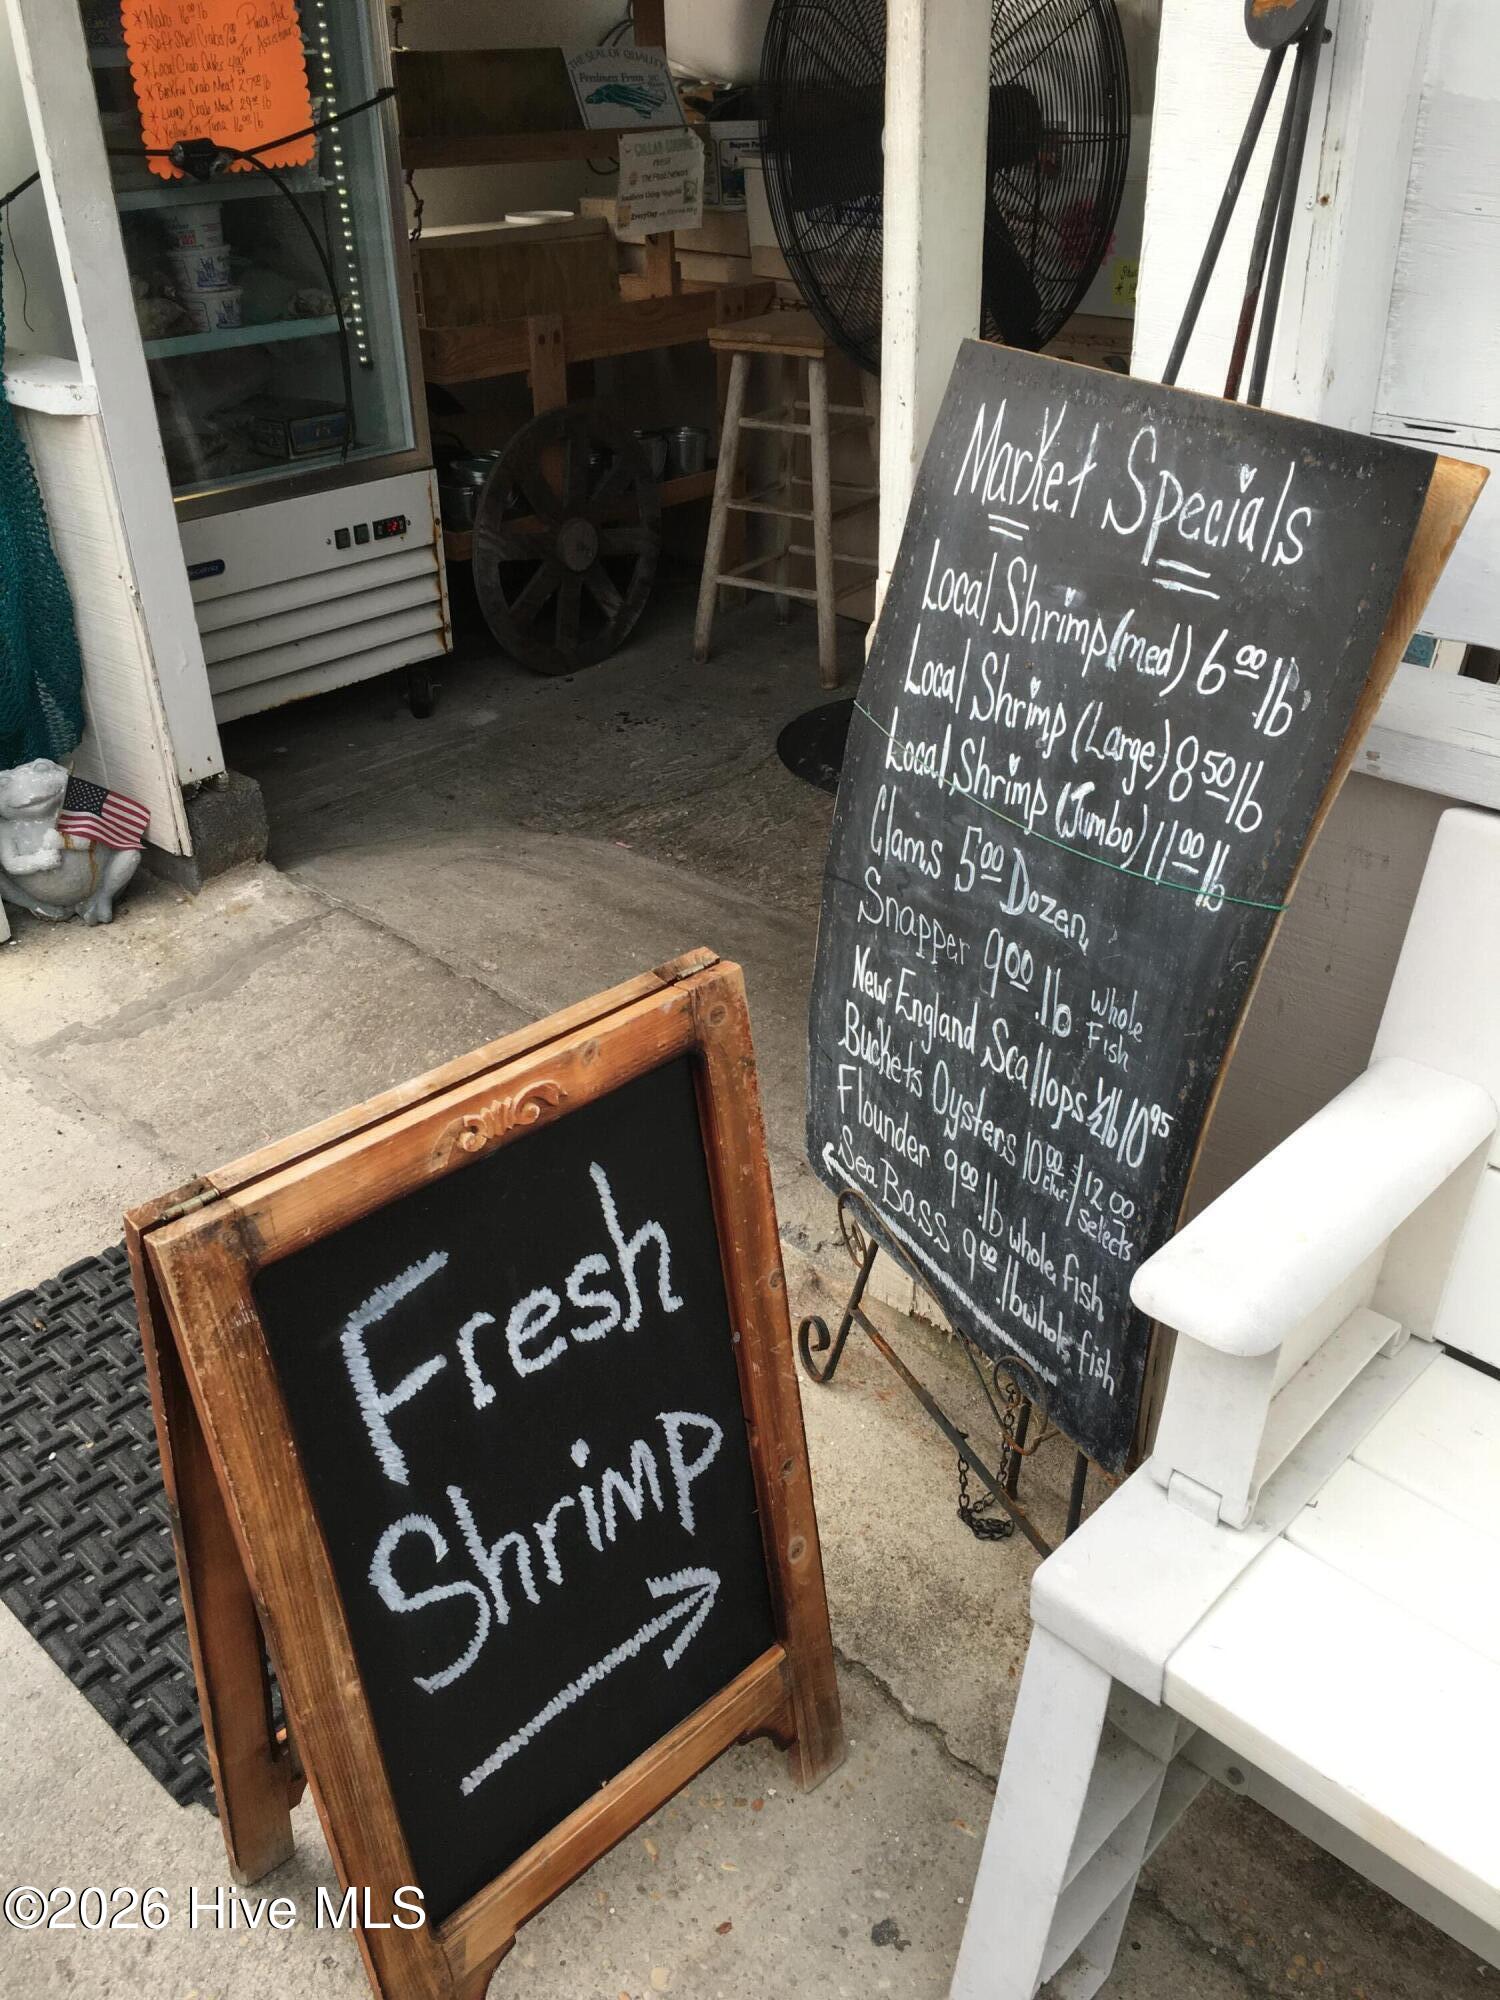 * Mahi 16.00 lb
* Soft Shell Crabs 7.00
* Local Crab Cakes 4.00
* Backfin Crab Meat 27.00 lb
* Lump Crab Meat 29.00 lb
* Yellow Fin Tuna 16.00 lb
Please Ask
For Assistance
THE SEAL OF QUALITY
Freshness From NC
The Food Network
Southern Living Magazine
Market Specials
Local Shrimp (med) 6.00 lb
Local Shrimp (Large) 8.50 lb
Local Shrimp (Jumbo) 11.00 lb
Clams 5.00 Dozen
Snapper 9.00 .lb whole Fish
New England Scallops ½ lb 10.95
Buckets Oysters 10.00 $12.00 selects
Flounder 9.00 .lb whole fish
Sea Bass 9.00 .lb whole fish
Fresh
Shrimp
©2026 Hive MLS